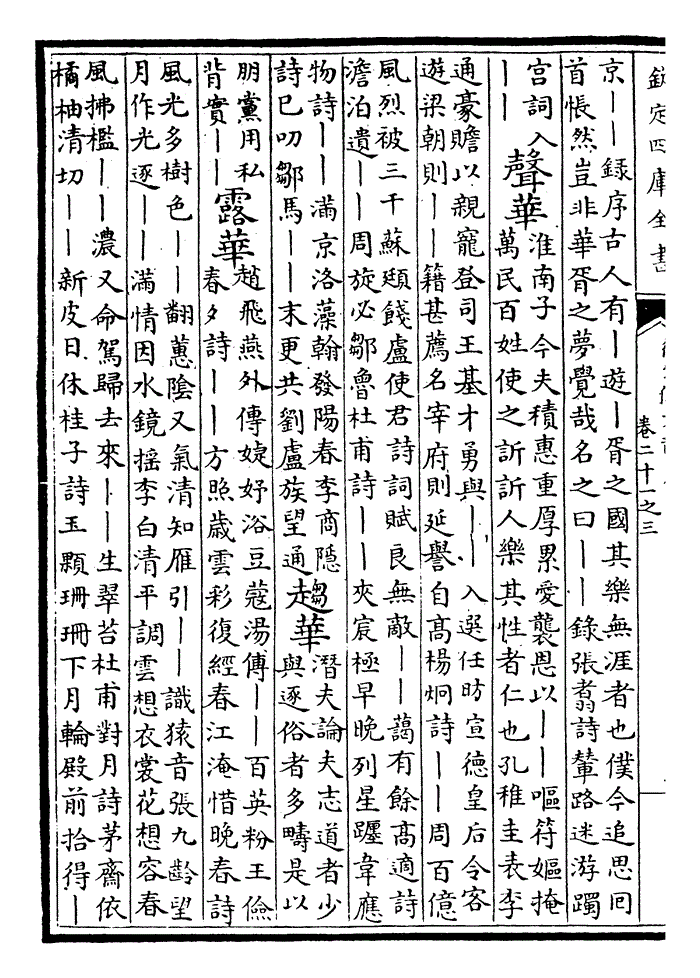 欽定四庫全書
卷二十一之三
京||錄序古人有|遊|胥之國其樂無涯者也僕今追思回
首悵然豈非華胥之夢覺哉名之曰||錄張翥詩輦路迷游躅
宮詞入
||
聲華
淮南子今夫積惠重厚累愛襲恩以||嘔符嫗掩
萬民百姓使之訢訢人樂其性者仁也孔稚圭表李
通豪贍以親寵登司王基才勇與||入選任昉宣德皇后令客
遊梁朝則||籍甚薦名宰府則延譽自高楊炯詩||周百億
風烈被三千蘇頲餞盧使君詩詞賦良無敵||藹有餘高適詩
澹泊遺||周旋必鄒魯杜甫詩||夾宸極早晚列星躔韋應
物詩||滿京洛藻翰發陽春李商隱
詩已叨鄒馬||末更共劉盧族望通
趨華
潛夫論夫志道者少
與逐俗者多疇是以
朋黨用私
背實||
露華
趙飛燕外傳婕妤浴豆蔻湯傅||百英粉王儉
春夕詩||方照歲雲彩復經春江淹惜晚春詩
風光多樹色||翻蕙陰又氣清知雁引||識猿音張九齡望
月作光逐||滿情因水鏡搖李白清平調雲想衣裳花想容春
風拂檻||濃又命駕歸去來||生翠苔杜甫對月詩茅齋依
橘柚清切||新皮日休桂子詩玉顆珊珊下月輪殿前拾得|